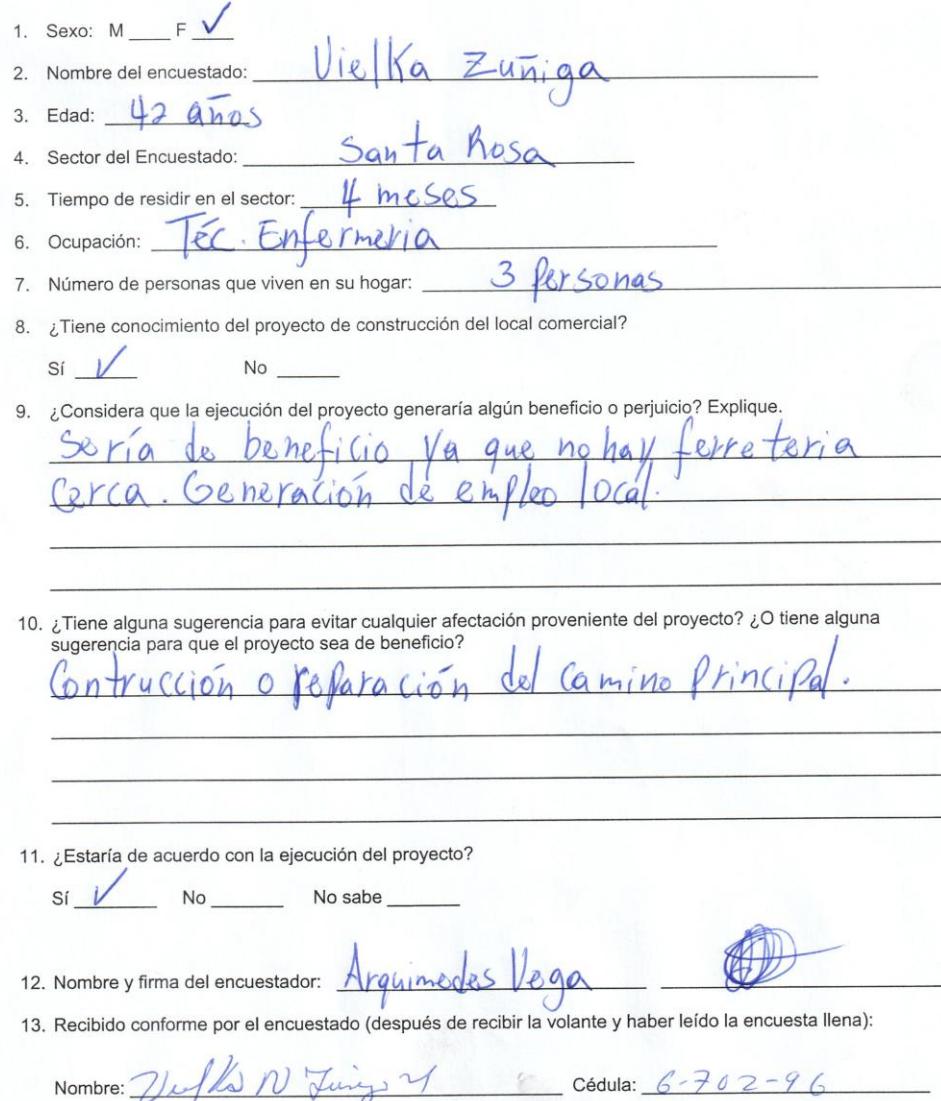 1. Sexo: M ____ F ✓
2. Nombre del encuestado: Vielka Zuñiga
3. Edad: 42 años
4. Sector del Encuestado: Santa Rosa
5. Tiempo de residir en el sector: 4 meses
6. Ocupación: Téc. Enfermeria
7. Número de personas que viven en su hogar: 3 Personas
8. ¿Tiene conocimiento del proyecto de construcción del local comercial?
Sí ✓ No ____
9. ¿Considera que la ejecución del proyecto generaría algún beneficio o perjuicio? Explique.
Sería de beneficio ya que no hay ferreteria
Cerca. Generación de empleo local.
10. ¿Tiene alguna sugerencia para evitar cualquier afectación proveniente del proyecto? ¿O tiene alguna
sugerencia para que el proyecto sea de beneficio?
Contrucción o reparación del camino Principal.
11. ¿Estaría de acuerdo con la ejecución del proyecto?
Sí ✓ No ____ No sabe ____
12. Nombre y firma del encuestador: Arquimedes Vega
13. Recibido conforme por el encuestado (después de recibir la volante y haber leído la encuesta llena):
Nombre: Cédula: 6-702-96